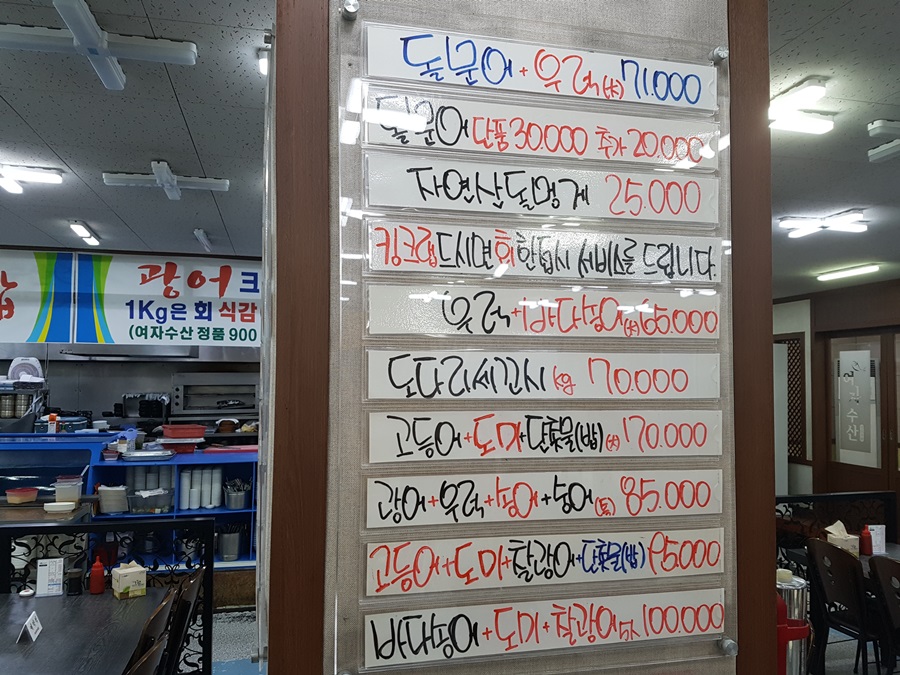 돌문어+우럭(大) 71.000
돌문어 단품 30.000 추가 20.000
자연산돌멍게 25.000
킹크랩드시면 회한접시 서비스를 드립니다.
우럭+바다송어(大) 65.000
도다리세꼬시 kg 70.000
고등어+도미+단품물(밥)(大) 170.000
광어+우럭+송어+숭어 85.000
고등어+도미+찰광어+ 95.000
바다송어+도미+찰광어 100.000
광어
1Kg은 회 식감
(여자수산 정품 900
여자수산